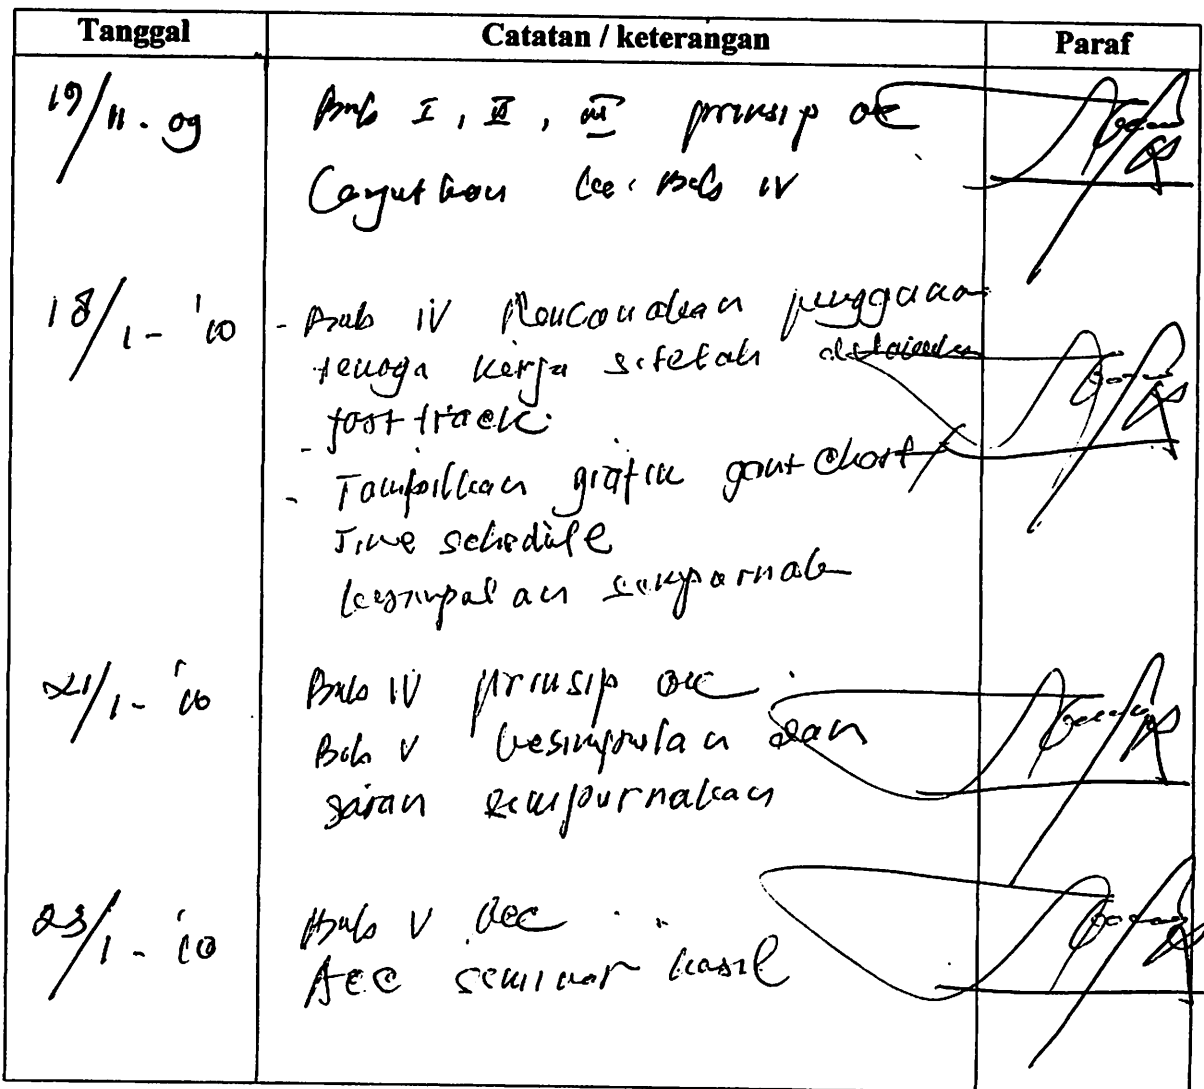 Tanggal Catatan / keterangan Paraf
19/11-09 Bab I, II, III prinsip ok
Lanjutkan ke Bab IV
18/1-'10 - Bab IV Rencanakan penggunaan
tenaga kerja setelah
fast track
- Tampilkan grafik gant chart/
Time schedule
kesimpulan
21/1-'10 Bab IV prinsip ok
Bab V kesimpulan dan
saran sempurnakan
23/1-'10 Bab V acc
Acc seminar hasil